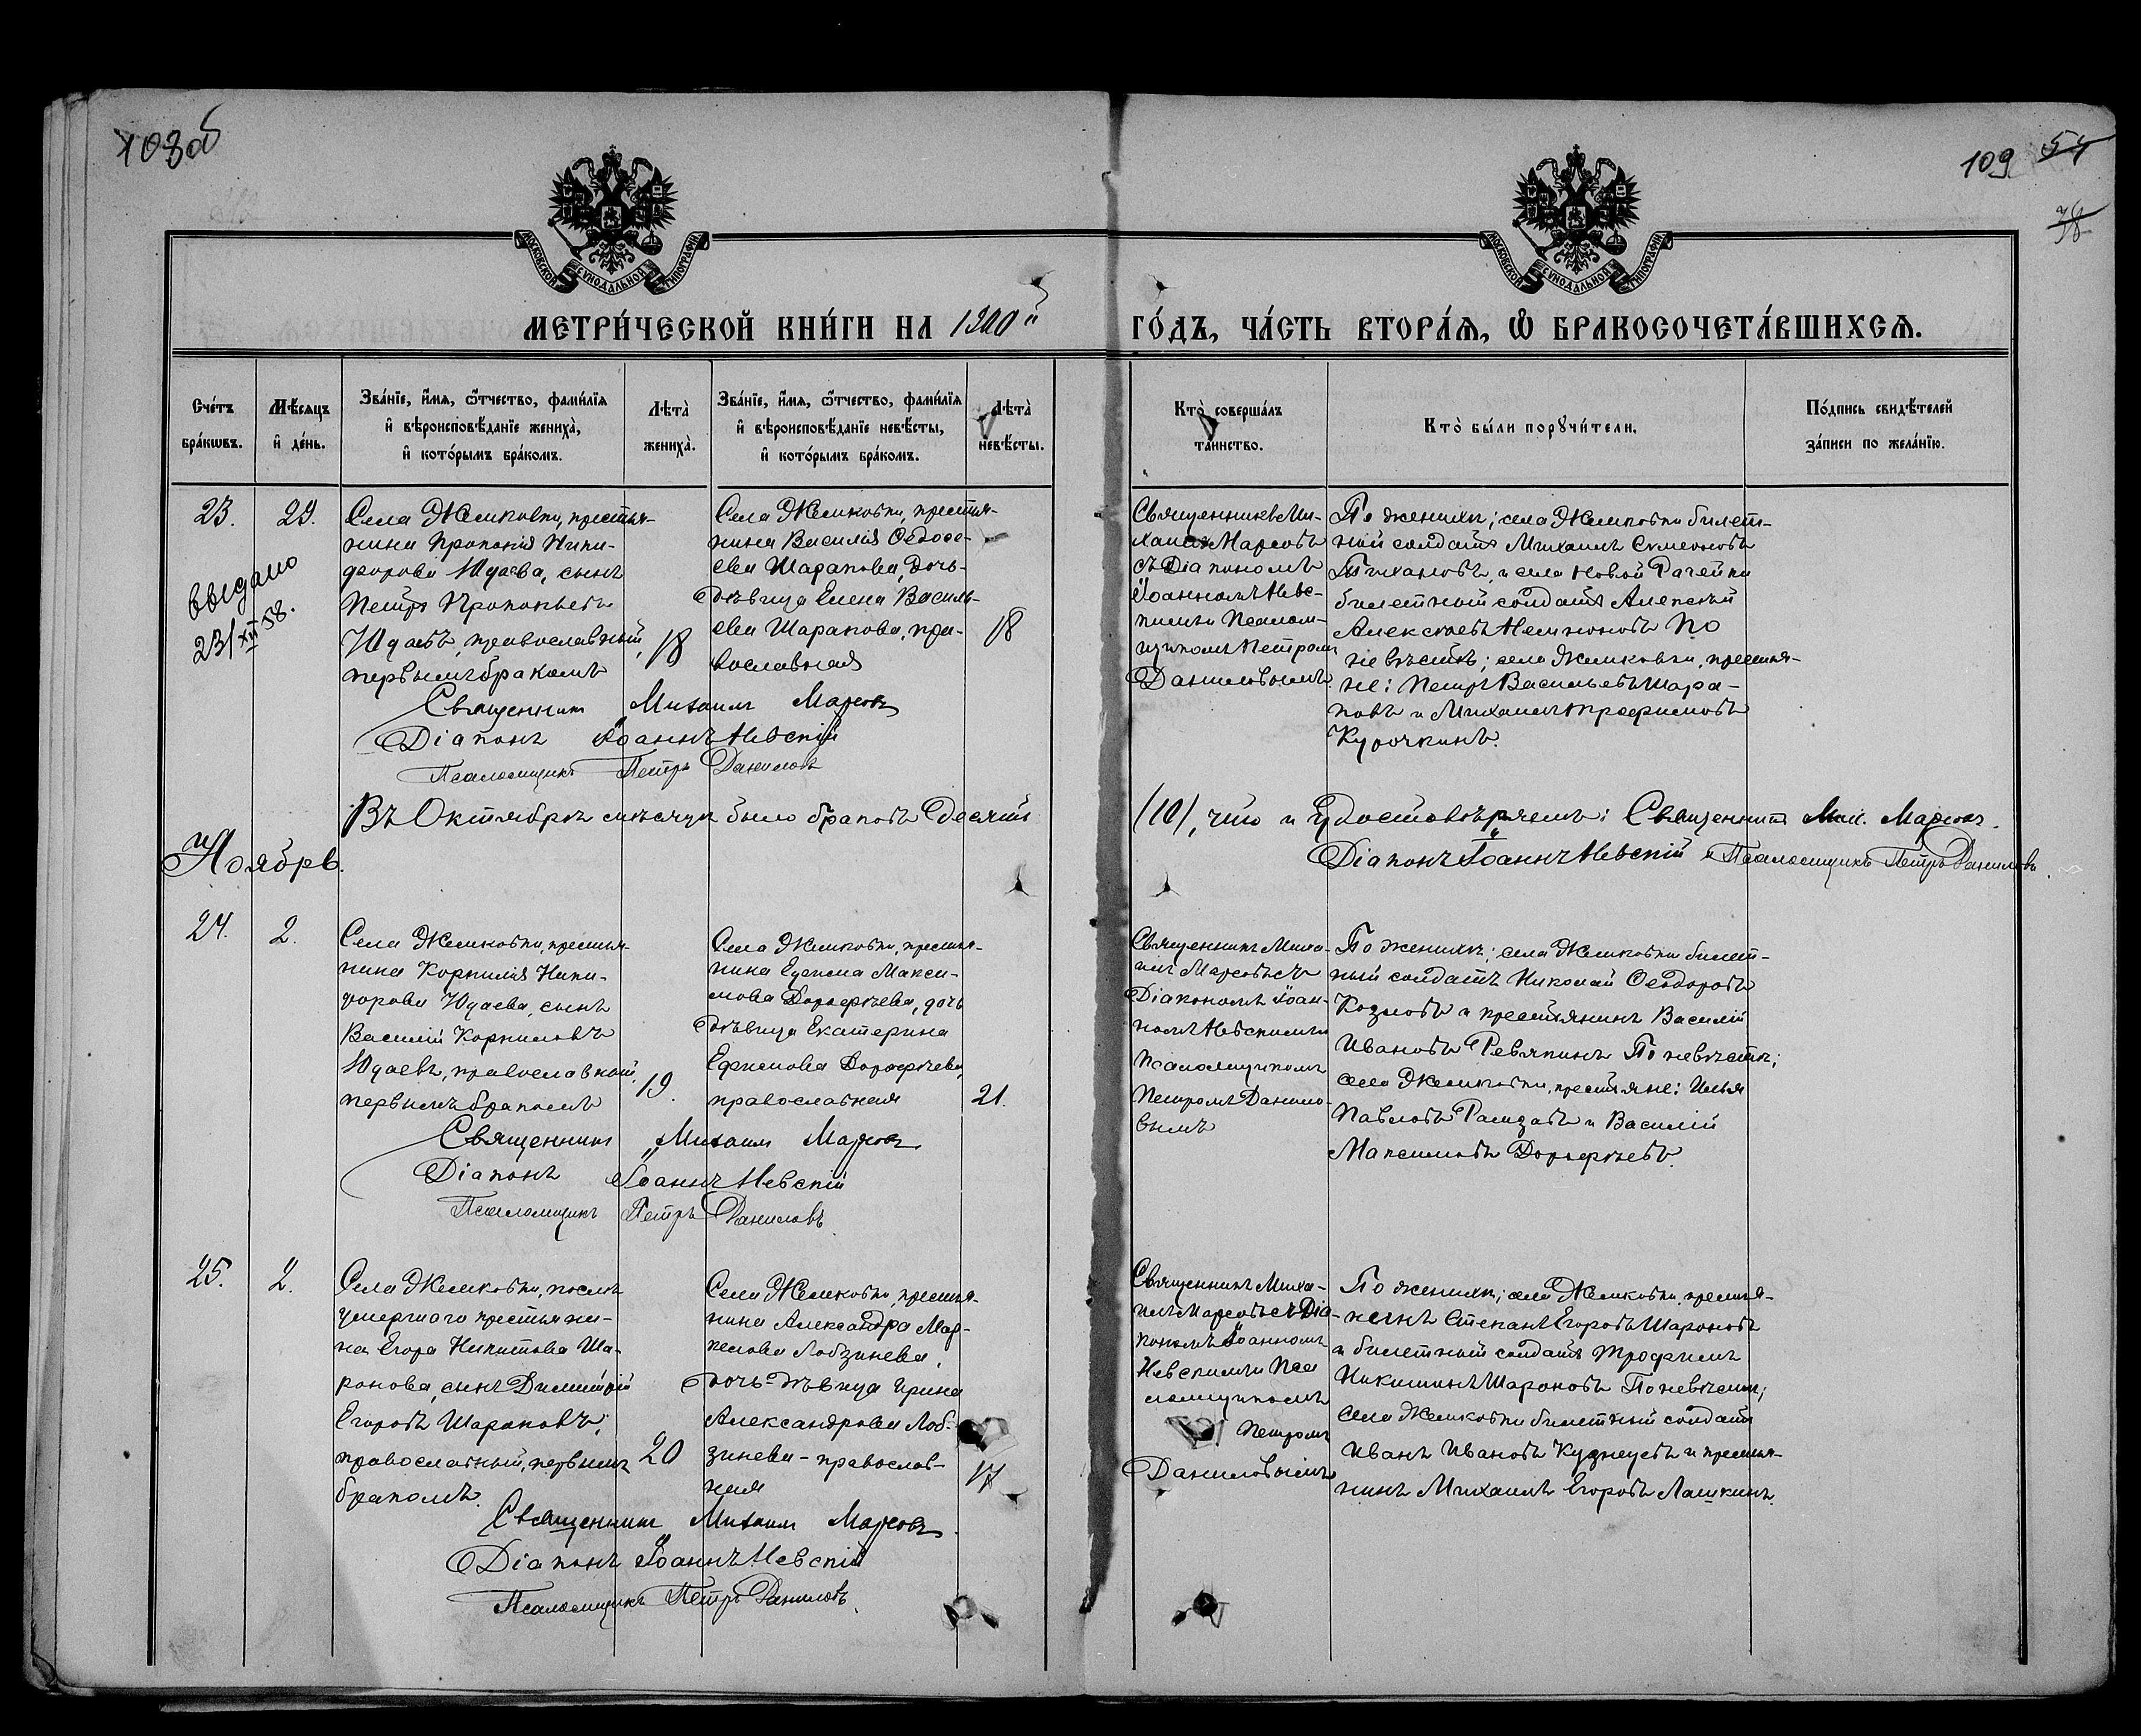 108об
109 54
38
МОСКОВСКОЙ СУНОДАЛЬНОЙ ТИПОГРАФІИ
МОСКОВСКОЙ СУНОДАЛЬНОЙ ТИПОГРАФІИ
МЕТРИ́ЧЕСКОЙ КНИ́ГИ НА 1900й ГО́ДЪ, ЧА́СТЬ ВТОРА́Я, Ѡ БРАКОСОЧЕТА́ВШИХСЯ.
Сче́тъ
бра́кѡвъ.
Мѣ́сяцъ
и҆ де́нь.
Зва́нїе, и҆́мя, ѻ҆́тчество, фами́лїя
и҆ вѣроисповѣ́данїе жениха̀,
и҆ кото́рымъ бра́комъ.
Лѣта̀
жениха̀.
Зва́нїе, и҆́мя, ѻ҆́тчество, фами́лїя
и҆ вѣроисповѣ́данїе невѣ́сты,
и҆ кото́рымъ бра́комъ.
Лѣта̀
невѣ́сты.
Кто̀ соверша́лъ
та́инство.
Кто̀ бы́ли порꙋчи́тели.
По́дпись свидѣ́телей
за́писи по жела́нїю.
23.
29.
выдано
23/XII 58.
Села Жемковки, крестья-
нина Прокопія Ники-
форова Юдаева, сынъ
Петръ Прокопьевъ
Юдаевъ, православный,
первымъ бракомъ
18
Села Жемковки, крестья-
нина Василія Ѳедосе-
ева Шарапова, дочь-
дѣвица Елена Василь-
ева Шарапова, пра-
вославная
18
Священникъ Ми-
хаилъ Марковъ
съ Діакономъ
Іоанномъ Невс-
кимъ и Псалом-
щикомъ Петромъ
Даниловымъ.
По женихѣ; села Жемковки билет-
ный солдатъ Михаилъ Семеновъ
Тихановъ, и села Новой Рачейки
билетный солдатъ Алексѣй
Алексѣевъ По
невѣстѣ; села Жемковки, крестья-
не: Петръ Васильевъ Шара-
повъ и Михаилъ Трофимовъ
Курочкинъ.
Священникъ Михаилъ Марковъ
Діаконъ Іоаннъ Невскій
Псаломщикъ Петръ Даниловъ
Въ Октябрѣ мѣсяцѣ было браковъ десять (10), что и удостовѣряемъ: Священникъ Мих. Марковъ.
Діаконъ Іоаннъ Невскій и Псаломщикъ Петръ Даниловъ.
Ноябрь.
24.
2.
Села Жемковки, крестья-
нина Корнилія Ники-
форова Юдаева, сынъ
Василій Корниловъ
Юдаевъ, православный,
первымъ бракомъ
19.
Села Жемковки, крестья-
нина Ефима Макси-
мова Дорофѣева, дочь
дѣвица Екатерина
Ефимова Дорофѣева,
православная
21.
Священникъ Миха-
илъ Марковъ съ
Діакономъ Іоан-
номъ Невскимъ и
Псаломщикомъ
Петромъ Данило-
вымъ
По женихѣ; села Жемковки билет-
ный солдатъ Николай Ѳеодоровъ
Козловъ и крестьянинъ Василій
Ивановъ Ревякинъ По невѣстѣ;
села Жемковки, крестьяне: Илья
Павловъ и Василій
Максимовъ Дорофѣевъ.
Священникъ Михаилъ Марковъ
Діаконъ Іоаннъ Невскій
Псаломщикъ Петръ Даниловъ.
25.
2.
Села Жемковки, послѣ
умершаго крестьяни-
на Егора Никитова Ша-
ронова, сынъ Димитрій
Егоровъ Шароновъ,
православный, первымъ
бракомъ.
20
Села Жемковки, крестья-
нина Александра Мар-
келова Лобзинева,
дочь-дѣвица Ирина
Александрова Лоб-
зинева - православ-
ная
17
Священникъ Миха-
илъ Марковъ съ Діа-
кономъ Іоанномъ
Невскимъ и Пса
ломщикомъ
Петромъ
Даниловымъ
По женихѣ; села Жемковки, крестья-
нинъ Степанъ Егоровъ Шароновъ
и билетный солдатъ Трофимъ
Никитинъ Шароновъ По невѣстѣ;
села Жемковки билетный солдатъ
Иванъ Ивановъ Кузнецовъ и крестья-
нинъ Михаилъ Егоровъ Лашкинъ.
Священникъ Михаилъ Марковъ.
Діаконъ Іоаннъ Невскій
Псаломщикъ Петръ Даниловъ.